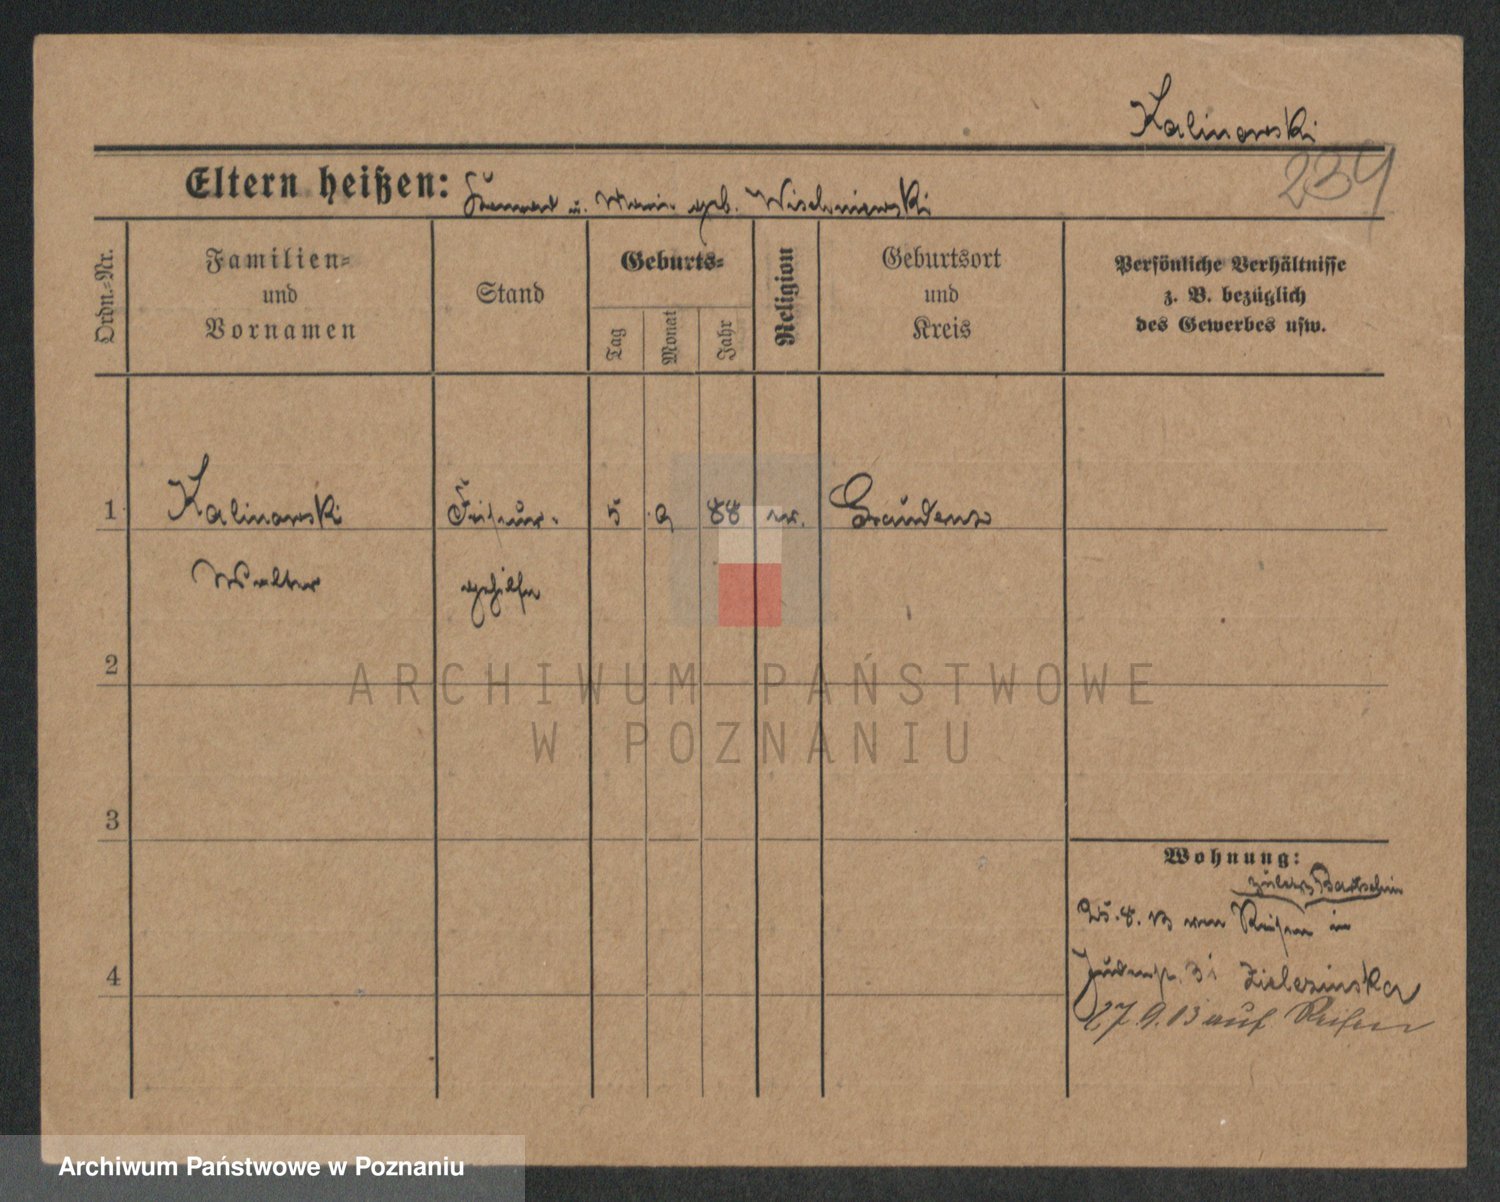 Kalinowski
234
Eltern heißen: u. Marie geb. Wischniewski
Ordn.=Nr.
Familien=
und
Vornamen
Stand
Geburts=
Tag
Monat
Jahr
Religion
Geburtsort
und
Kreis
Persönliche Verhältnisse
z. B. bezüglich
des Gewerbes usw.
1
Kalinowski
Walter
Friseur-
gehilfe
5
9
88
Graudenz
2
3
4
Wohnung:
zuletzt Bartschin
25.8.13 von Reisen in
Judenstr. 3 Zielezinska
27.9.13 auf Reisen
ARCHIWUM PAŃSTWOWE
W POZNANIU
Archiwum Państwowe w Poznaniu